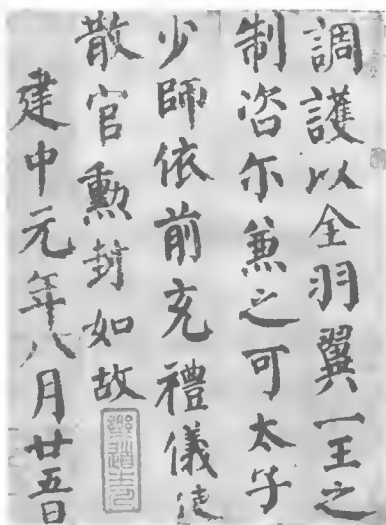 調護以全羽翼一王之
制咨尔兼之可太子
少師依前充禮儀使
散官勳封如故
建中元年八月廿五日